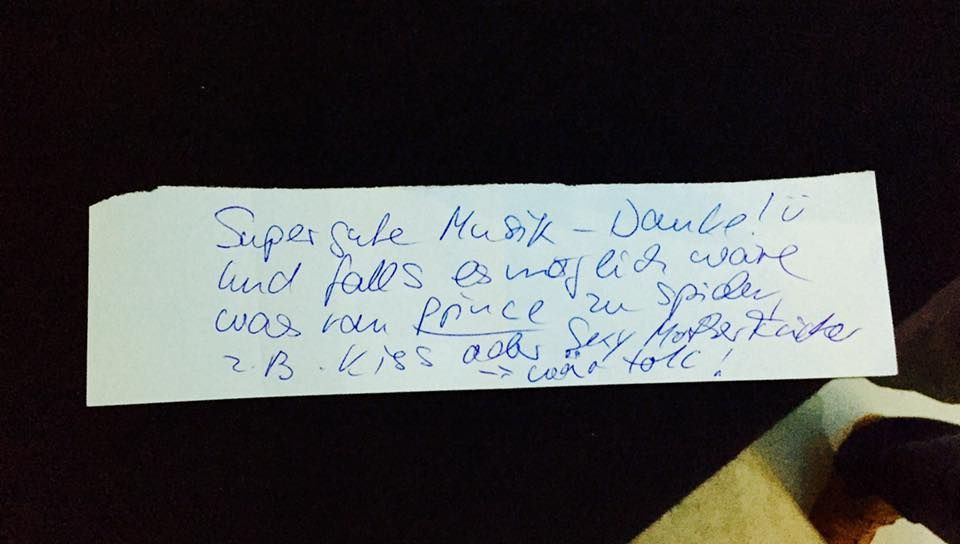 Supergute Musik – Danke! ü
Und falls es möglich wäre
was von Prince zu spielen,
z.B. Kiss oder Sexy MotherFucker
–> wär toll!